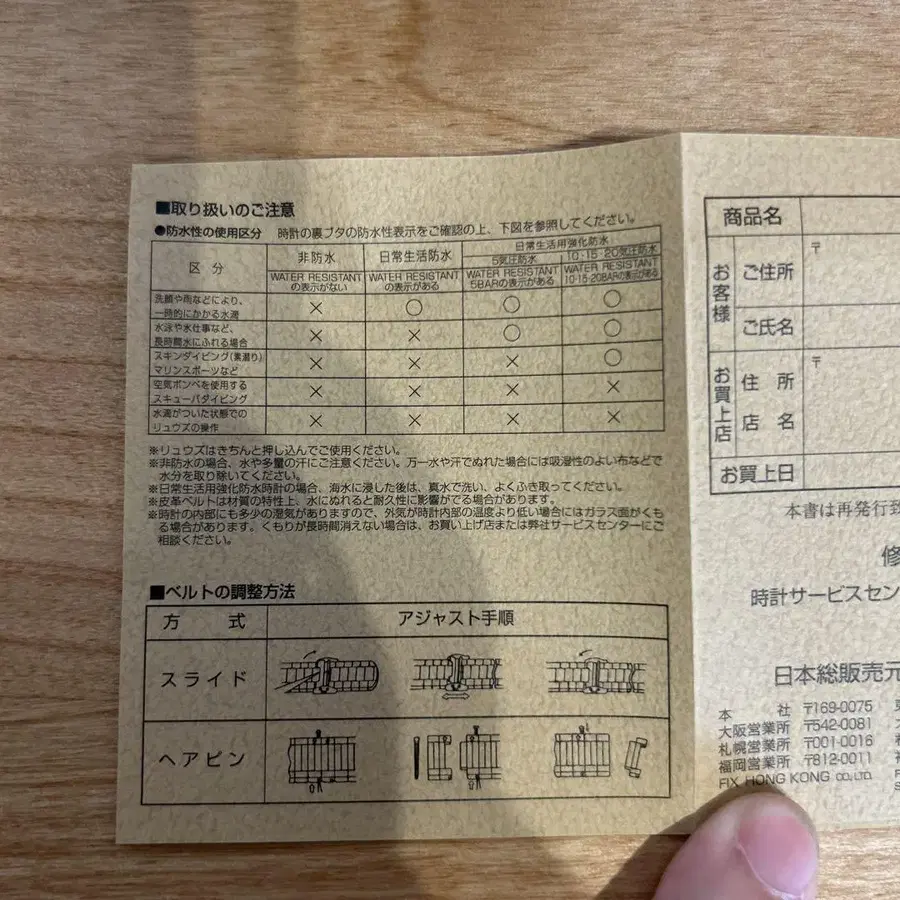 ■取り扱いのご注意
●防水性の使用区分　時計の裏ブタの防水性表示をご確認の上、下図を参照してください。
区分　非防水　日常生活防水　日常生活用強化防水
5気圧防水　10・15・20気圧防水
WATER RESISTANTの表示がない　WATER RESISTANTの表示がある　WATER RESISTANT 5BARの表示がある　WATER RESISTANT 10・15・20BARの表示がある
洗顔や雨などにより、
一時的にかかる水滴　×　○　○　○
水泳や水仕事など、
長時間水にふれる場合　×　×　○　○
スキンダイビング(素潜り)
マリンスポーツなど　×　×　×　○
空気ボンベを使用する
スキューバダイビング　×　×　×　×
水滴がついた状態での
リュウズの操作　×　×　×　×
※リュウズはきちんと押し込んでご使用ください。
※非防水の場合、水や多量の汗にご注意ください。万一水や汗でぬれた場合には吸湿性のよい布などで
水分を取り除いてください。
※日常生活用強化防水時計の場合、海水に浸した後は、真水で洗い、よくふき取ってください。
※皮革ベルトは材質の特性上、水にぬれると耐久性に影響がでる場合があります。
※時計の内部にも多少の湿気がありますので、外気が時計内部の温度より低い場合にはガラス面がくも
る場合があります。くもりが長時間消えない場合は、お買い上げ店または弊社サービスセンターにご
相談ください。
■ベルトの調整方法
方式　アジャスト手順
スライド
ヘアピン
商品名
お客様　ご住所　〒
ご氏名
お買上店　住所　〒
店名
お買上日
本書は再発行致
修
時計サービスセン
日本総販売元
本社　〒169-0075
大阪営業所　〒542-0081
札幌営業所　〒001-0016
福岡営業所　〒812-0011
FIX HONG KONG CO., LTD.